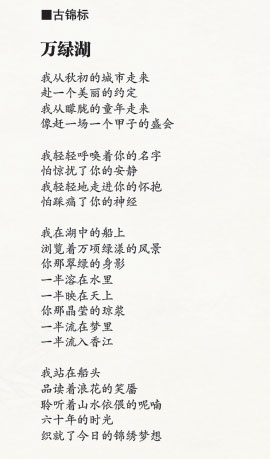 ■古锦标
万绿湖
我从秋初的城市走来
赴一个美丽的约定
我从朦胧的童年走来
像赶一场一个甲子的盛会
我轻轻呼唤着你的名字
怕惊扰了你的安静
我轻轻地走进你的怀抱
怕踩痛了你的神经
我在湖中的船上
浏览着万顷绿漾的风景
你那翠绿的身影
一半溶在水里
一半映在天上
你那晶莹的琼浆
一半流在梦里
一半流入香江
我站在船头
品读着浪花的笑靥
聆听着山水依偎的呢喃
六十年的时光
织就了今日的锦绣梦想